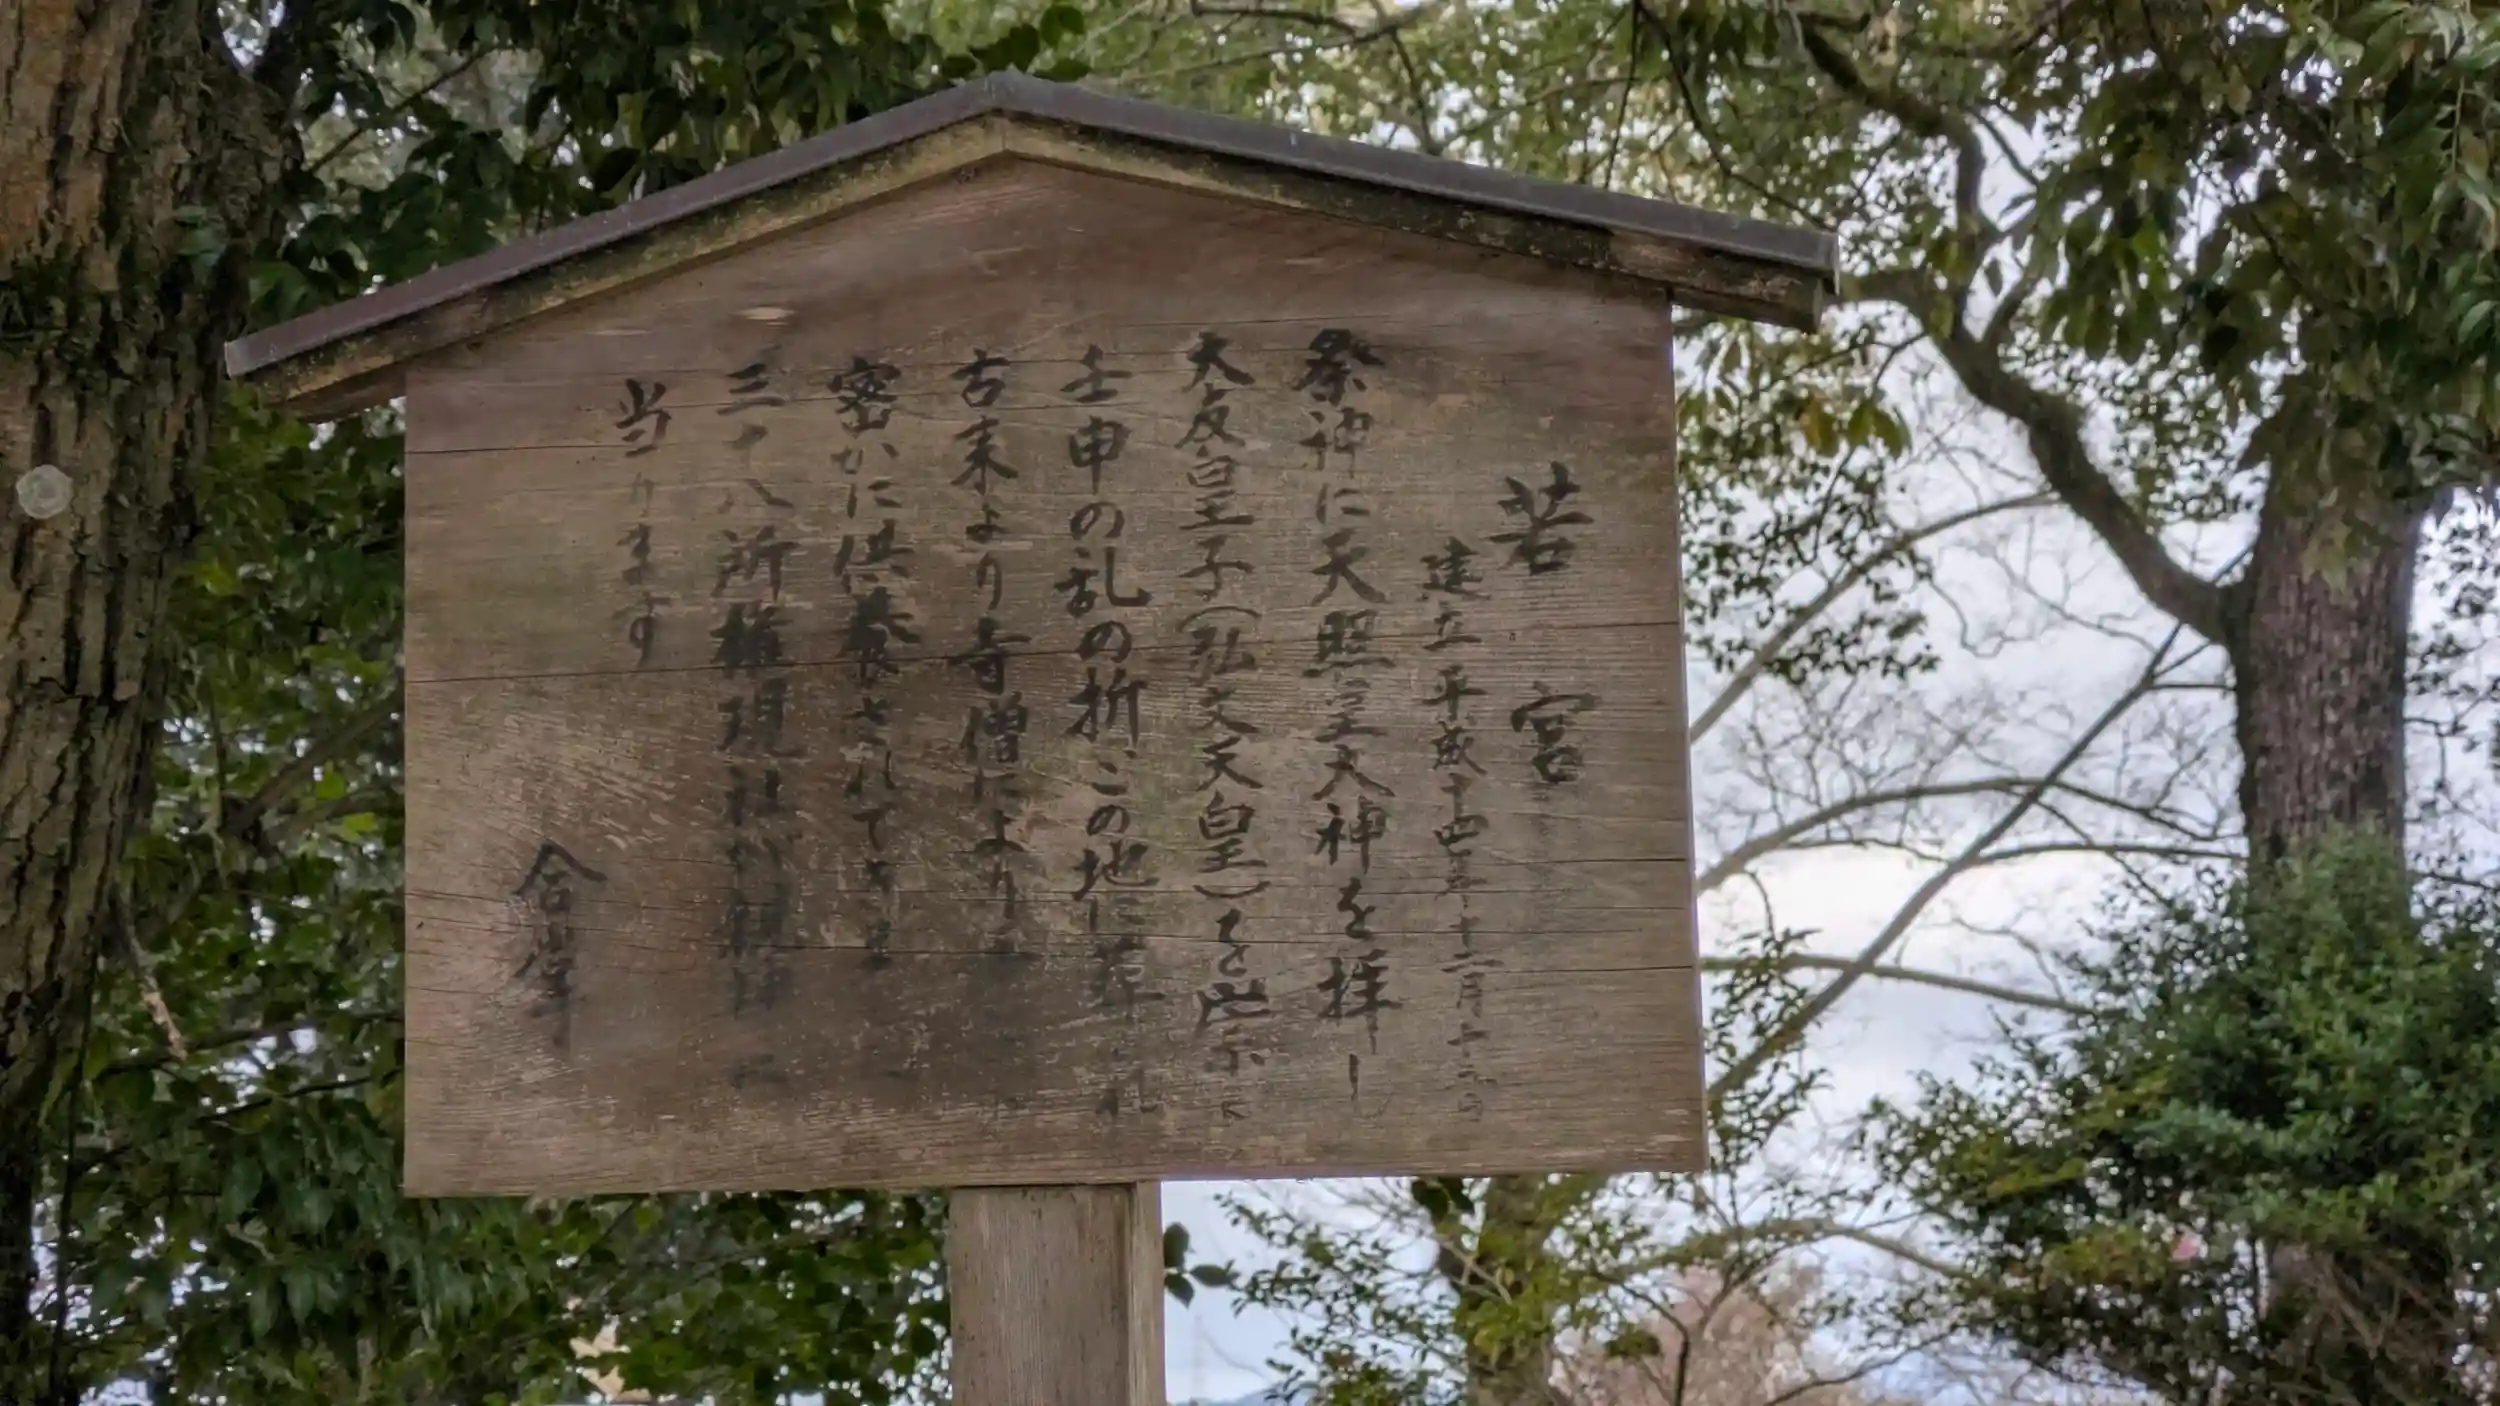 若宮
建立 平成十四年十二月十
祭神に天照皇大神を拝し
大友皇子(弘文天皇)を崇
壬申の乱の折、この地に葬
古来より寺僧により
密かに供養されてきま
三十八所権現社が
当ります
合掌